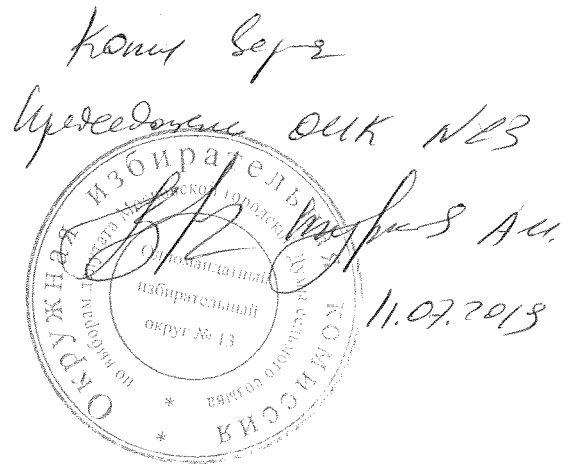 Копия верна
Председатель ОИК №23
А.И.
11.07.2019
Окружная избирательная комиссия
по выборам депутата Московской городской Думы седьмого созыва
Одномандатный
избирательный
округ № 13
* *